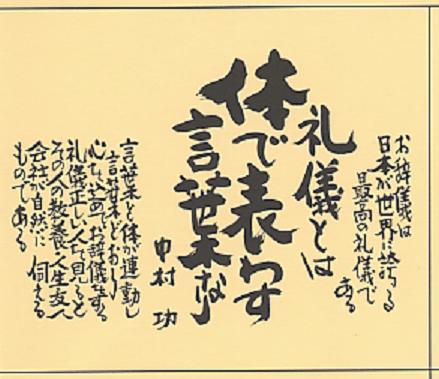 お辞儀は
日本が世界に誇る
最高の礼儀で
ある
礼儀とは
体で表わす
言葉なり
中村 功
言葉と体が連動し
言葉どおり
心を込めてお辞儀をする
礼儀正しい人を見ると
その人の教養、人生、友人
会社が自然に 伺える
ものである